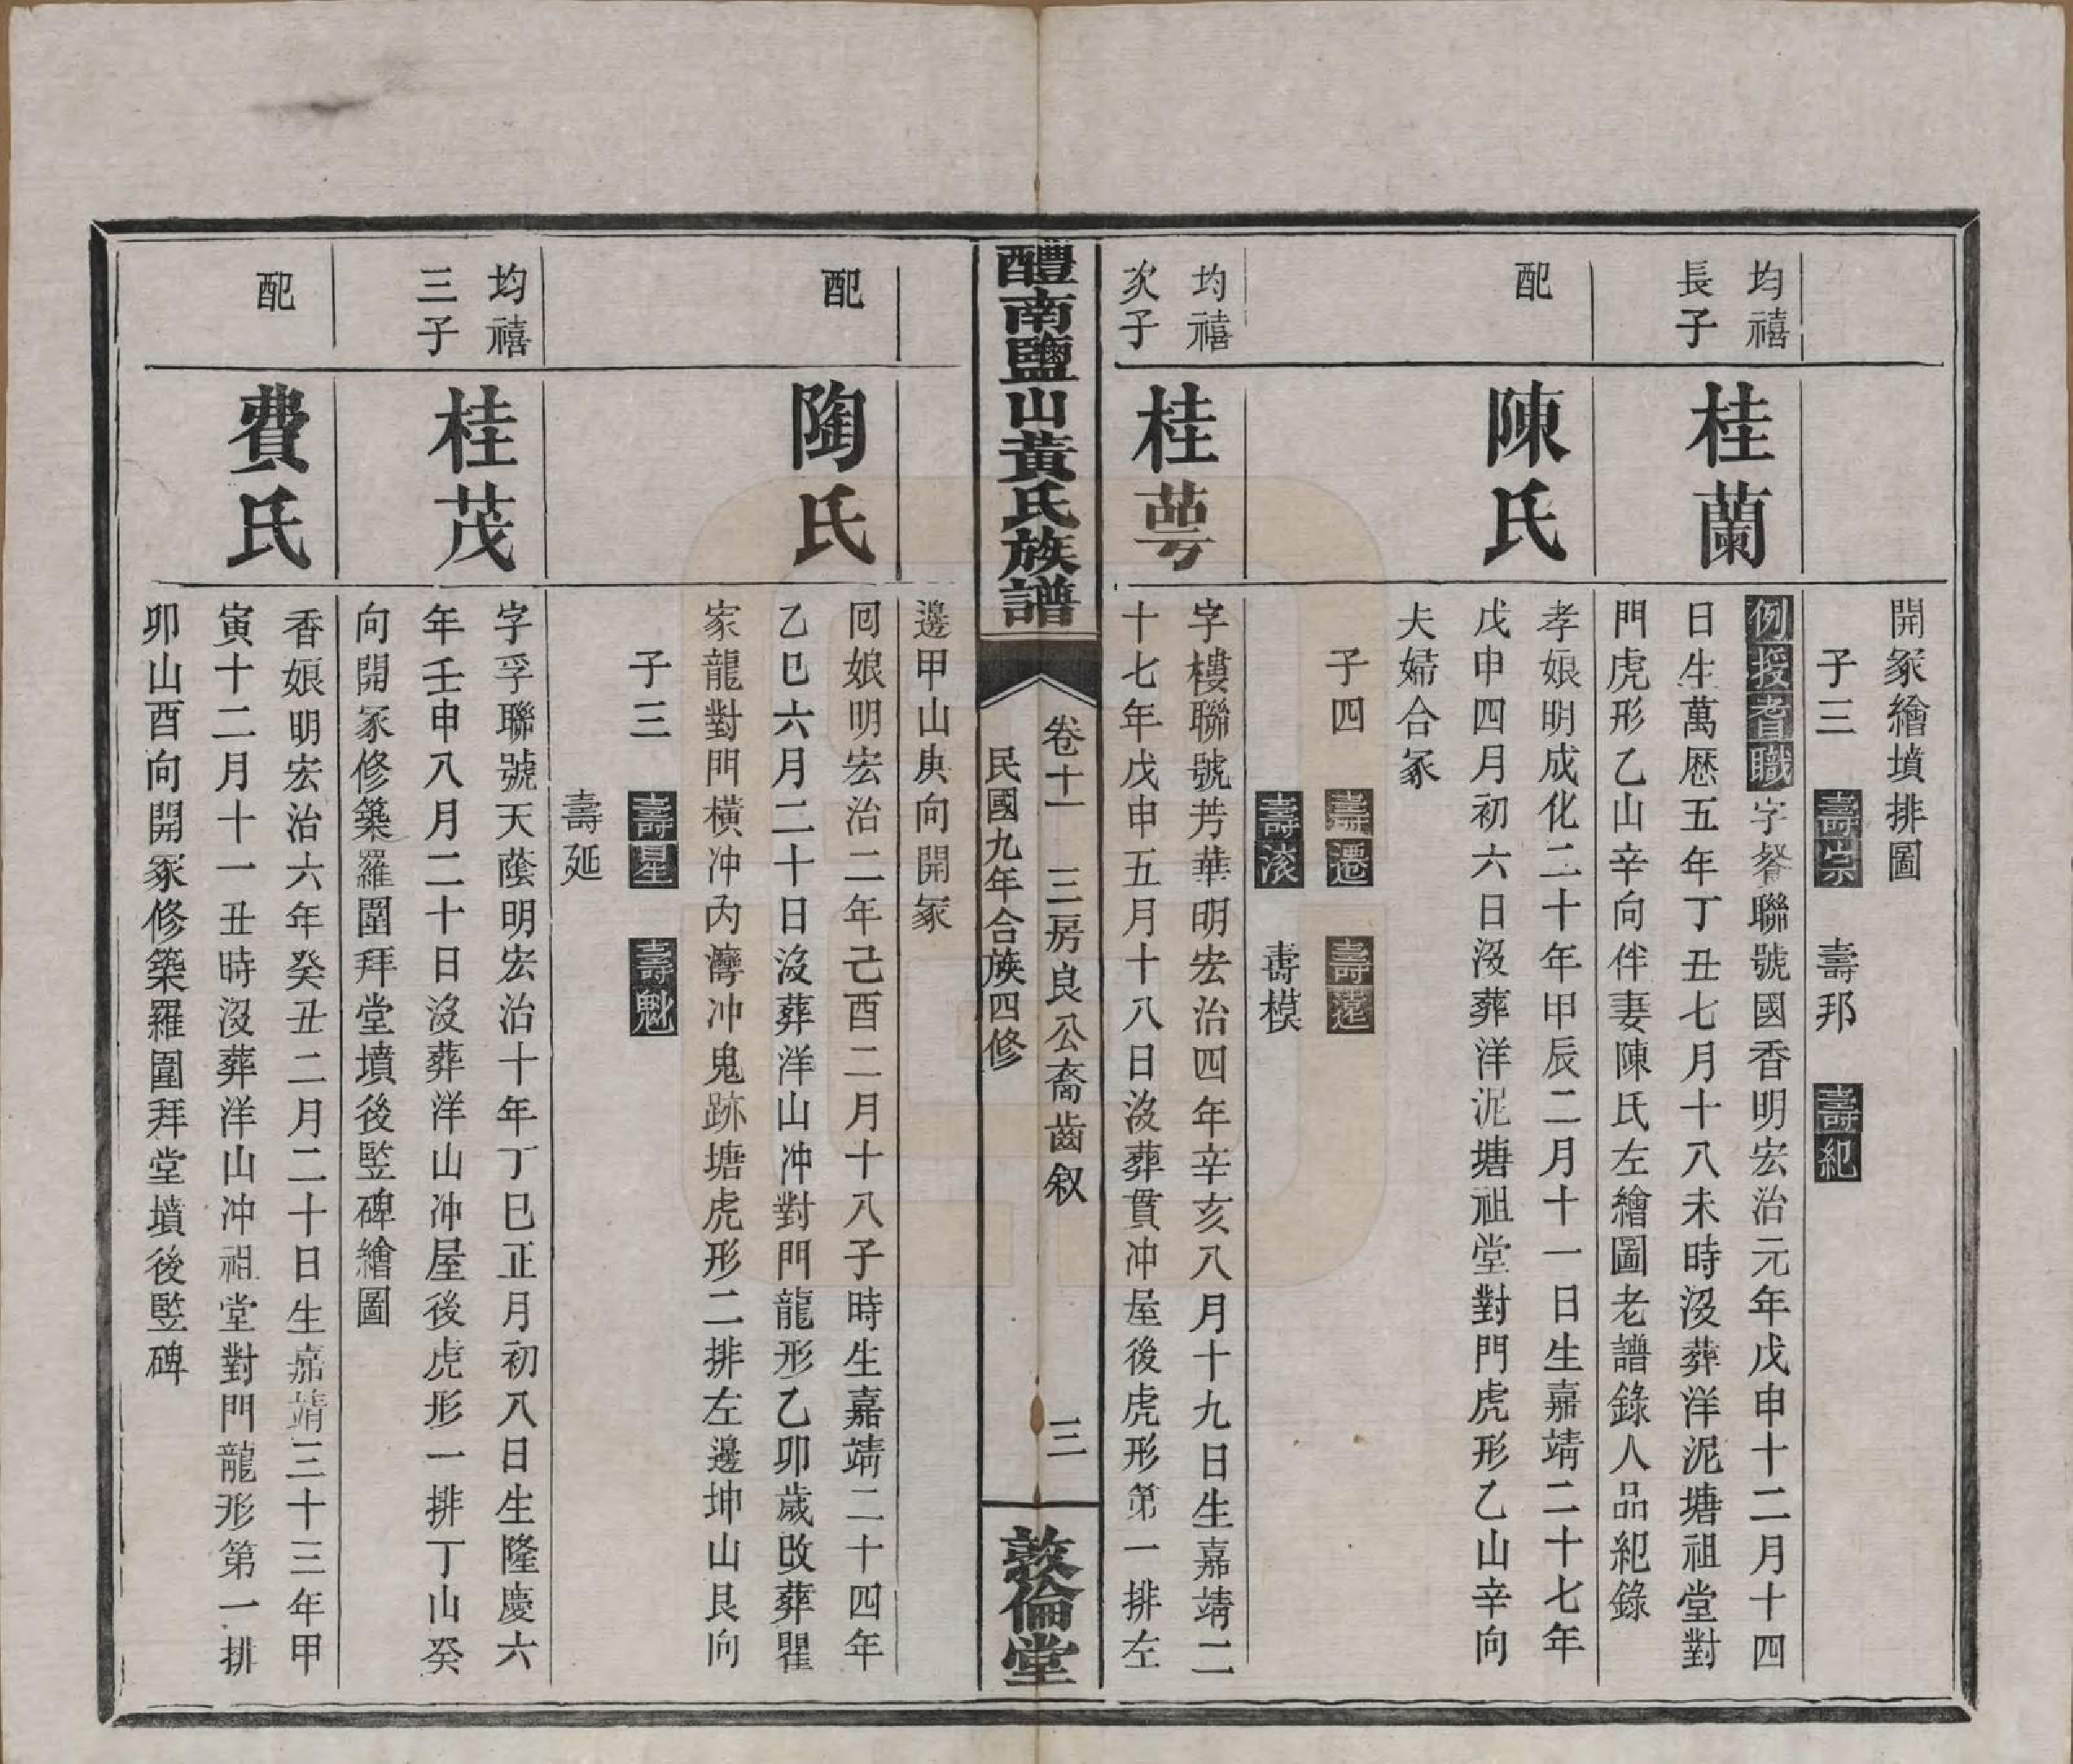 開冢繪墳排圖
子三　壽崇　壽邦　壽紀
均禧
長子
桂蘭
例授耆職字馨聯號國香明宏治元年戊申十二月十四
日生萬歷五年丁丑七月十八未時沒葬洋泥塘祖堂對
門虎形乙山辛向伴妻陳氏左繪圖老譜錄人品紀錄
配
陳氏
孝娘明成化二十年甲辰二月十一日生嘉靖二十七年
戊申四月初六日沒葬洋泥塘祖堂對門虎形乙山辛向
夫婦合冢
子四　壽遷　壽遠
壽浹　壽模
均禧
次子
桂萼
字樓聯號芳華明宏治四年辛亥八月十九日生嘉靖二
十七年戊申五月十八日沒葬貫冲屋後虎形第一排左
醴南鹽山黃氏族譜
卷十一　三房良公裔齒叙　三
民國九年合族四修
敦倫堂
邊甲山庚向開冢
配
陶氏
回娘明宏治二年己酉二月十八子時生嘉靖二十四年
乙巳六月二十日沒葬洋山冲對門龍形乙卯歲改葬瞿
家龍對門橫冲內灣冲鬼跡塘虎形二排左邊坤山艮向
子三　壽星　壽魁
壽延
均禧
三子
桂茂
字孚聯號天蔭明宏治十年丁巳正月初八日生隆慶六
年壬申八月二十日沒葬洋山冲屋後虎形一排丁山癸
向開冢修築羅圍拜堂墳後竪碑繪圖
配
費氏
香娘明宏治六年癸丑二月二十日生嘉靖三十三年甲
寅十二月十一丑時沒葬洋山冲祖堂對門龍形第一排
卯山酉向開冢修築羅圍拜堂墳後竪碑